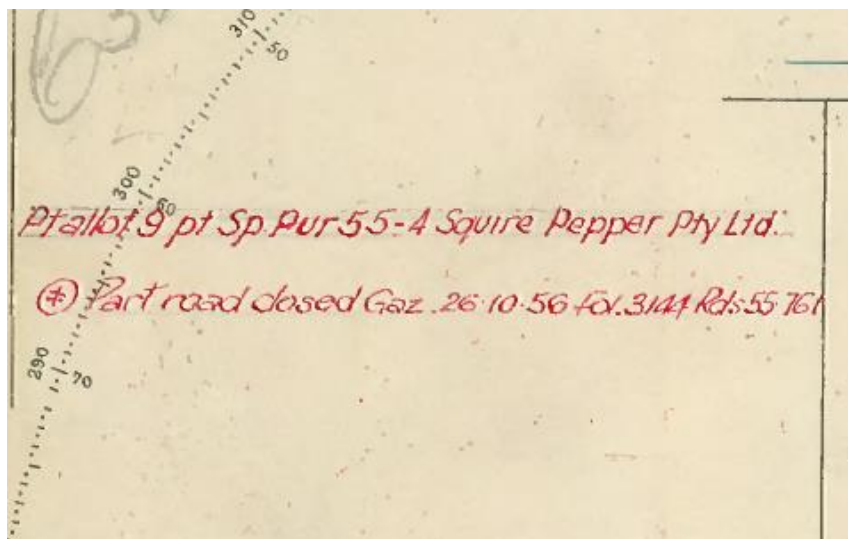 310
50
300
60
Pt allot 9 pt Sp. Pur 55-4 Squire Pepper Pty Ltd.
(#) Part road closed Gaz. 26.10.56 fol. 3144 Rds 55.761
290
70